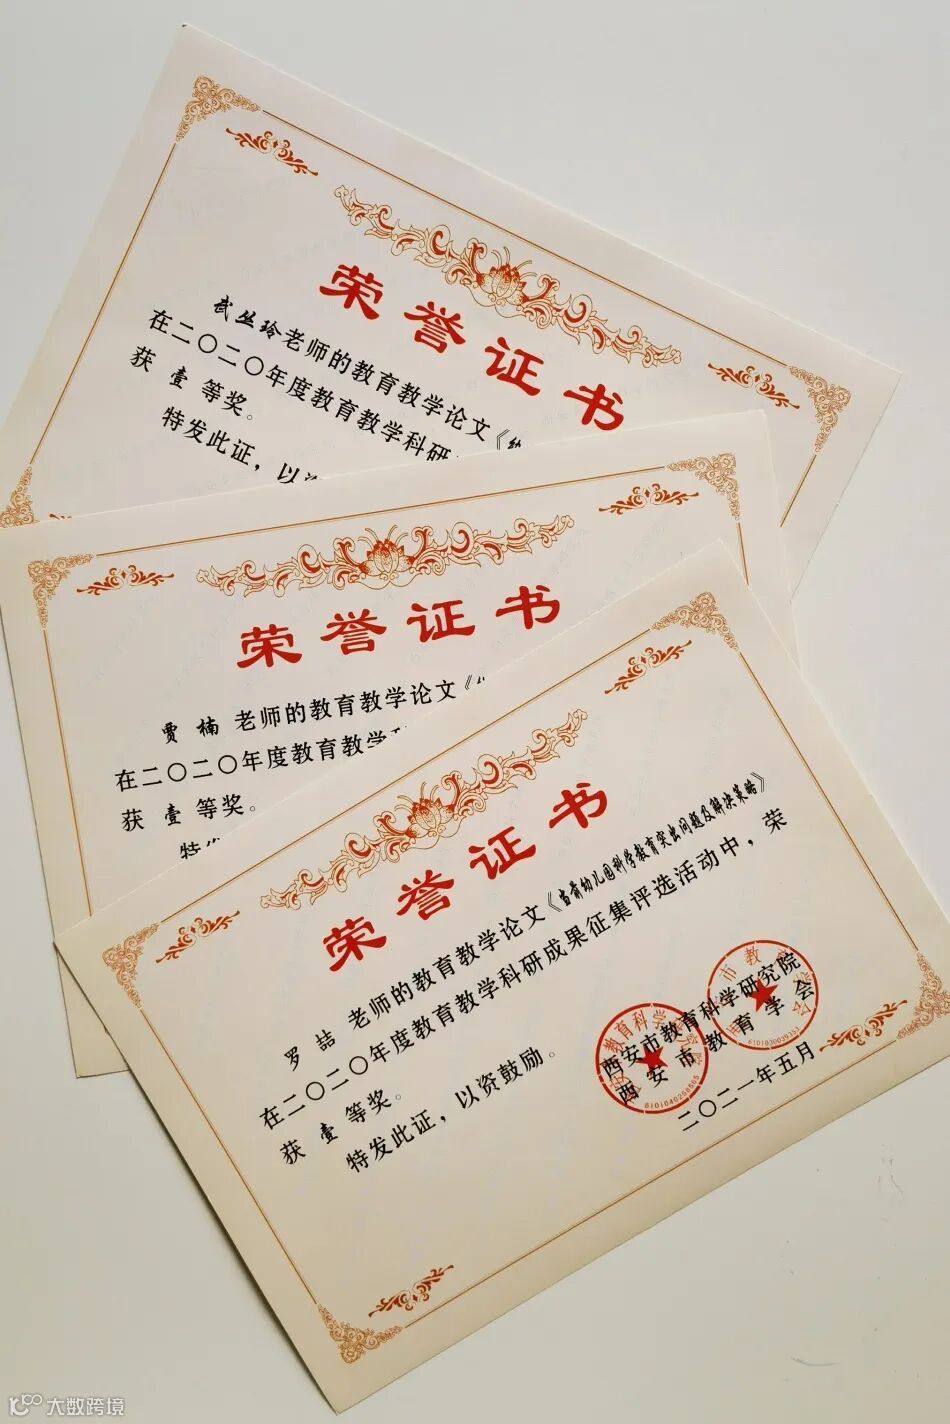 荣誉证书
武丛玲老师的教育教学论文《幼
在二〇二〇年度教育教学科研
获 壹 等奖。
特发此证，以资
荣誉证书
贾楠 老师的教育教学论文《
在二〇二〇年度教育教学
获 壹 等奖。
特发
荣誉证书
罗喆 老师的教育教学论文《当前幼儿园科学教育突出问题及解决策略》
在二〇二〇年度教育教学科研成果征集评选活动中，荣
获 壹 等奖。
特发此证，以资鼓励。
西安市教育科学研究院
西安市教育学会
二〇二一年五月
大数跨境